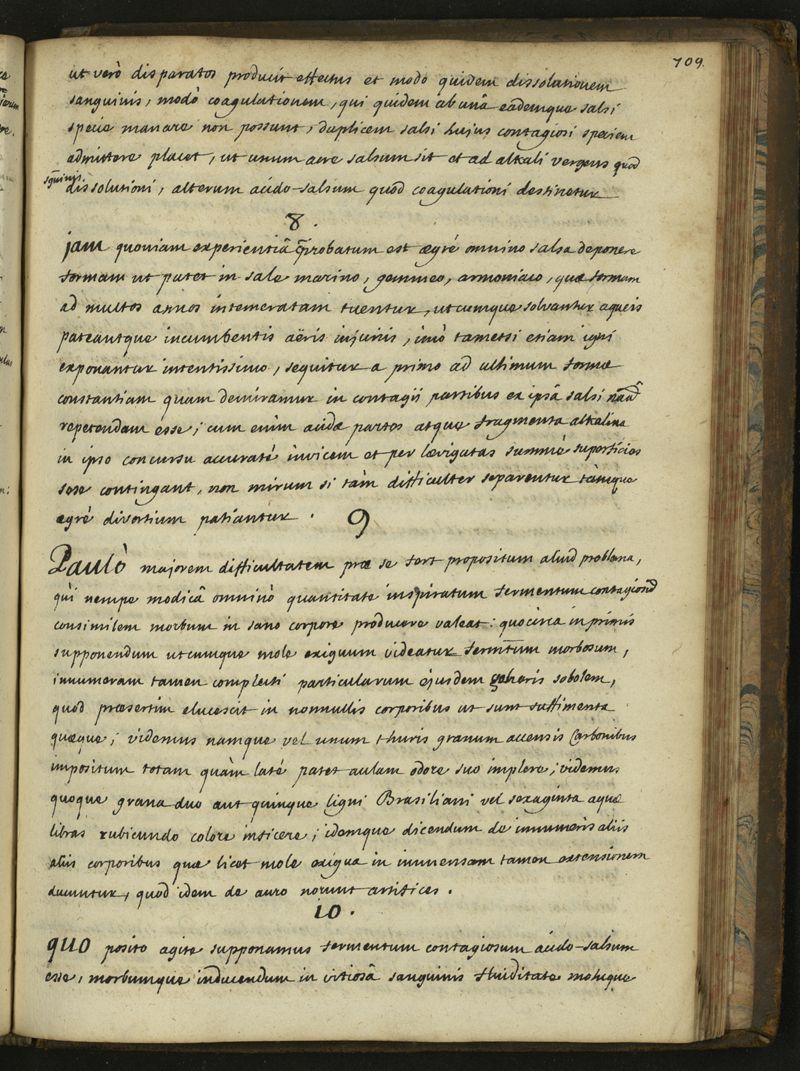 709.
ut verò disparatos producit effectus et modo quidem dissolutionem
sanguinis, modò coagulationem, qui quidem ab unâ eâdemque salsi
specie manare non possunt, duplicem salsi hujus contagiosi speciem
admittere placet, ut unum acre salsum sit et ad alkali vergens quod
sguinis dissolutioni, alterum acido-salsum quod coagulationi destinetur
8.
jam quoniam experientiâ comprobatum est ægrè omnino salsa deponere
formam ut patet in sale marino, gemmeo, armoniaco, quæ formam
ad multos annos intemeratam tuentur, utcumque solvantur aqueis
pateantque incumbentis aëris injuriis, imò tametsi etiam igni
exponantur intentissimo, sequitur a primo ad ultimum formæ
constantiam quam demiramur in contagii partibus ex ipsâ salsi nââ
repetendam esse; cum enim acidæ partes atque fragmenta alkalina
in ipso concursu accuratè invicem et per lævigatas summè superficies
sese contingant, non mirum si tàm difficulter separentur tàmque
ægrè divortium patiantur.
9
Paulò majorem difficultatem præ se fert propositum aliud problema,
quì nempe modicâ omninò quantitate inspiratum fermentum contagiosũ
consimilem morbum in sano corpore producere valeat: quocirca inprimis
supponendum utcumque mole exiguum videatur fermtum morbosum,
innumeram tamen complecti particularum ejusdem generis sobolem,
quod præsertim elucescit in nonnullis corporibus ut sunt suffimenta
quæque; videmus namque vel unum thuris granum accensis Carbonibus
impositum totam quàm latè patet aulam odore suo implere; videmus
quoque grana duo aut quinque ligni Brasiliani vel sexaginta aquæ
libras rubicundo colore inficere; idemque dicendum de innumeris aliis
aliis corporibus quæ licet mole exigua in immensam tamen extensionem
ducuntur, quod idem de auro norunt artifices.
10.
quo posito agite supponamus fermentum contagiosum acido-salsum
esse, morbumque inducendum in vitiosâ sanguinis fluiditate motuque